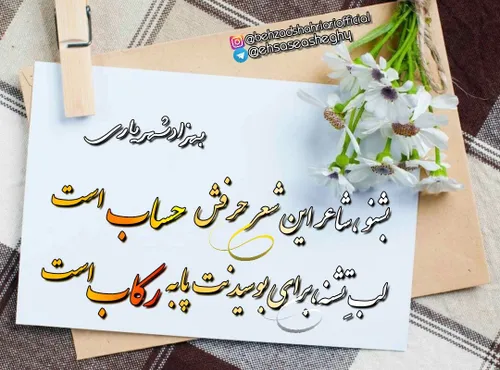 @behzadshahriariofficial
@ehsaseasheghy
بهزاد شهریاری
بشنو، شاعر این شعر حرفش حساب است
لب تشنه، برای بوسیدنت پا به رکاب است